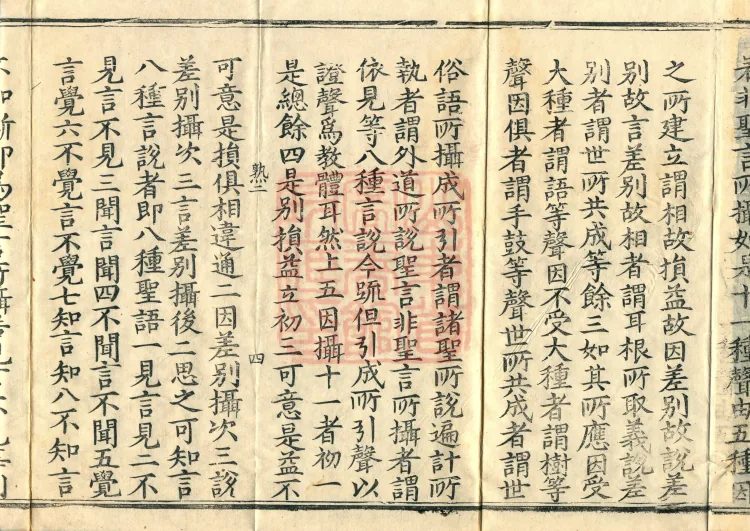 非聖言所攝如是十一種聲由五種因
之所建立謂相故損益故因差別故說差
別故言差別故相者謂耳根所取義說差
別者謂世所共成等餘三如其所應因受
大種者謂語等聲因不受大種者謂樹等
聲因俱者謂手鼓等聲世所共成者謂世
俗語所攝成所引者謂諸聖所說遍計所
執者謂外道所說聖言非聖言所攝者謂
依見等八種言說今䟽但引成所引聲以
證聲爲教體耳然上五因攝十一者初一
是總餘四是別損益立初三可意是益不
熟二
四
可意是損俱相違通二因差別攝次三說
差別攝次三言差別攝後二思之可知言
八種言說者即八種聖語一見言見二不
見言不見三聞言聞四不聞言不聞五覺
言覺六不覺言不覺七知言知八不知言